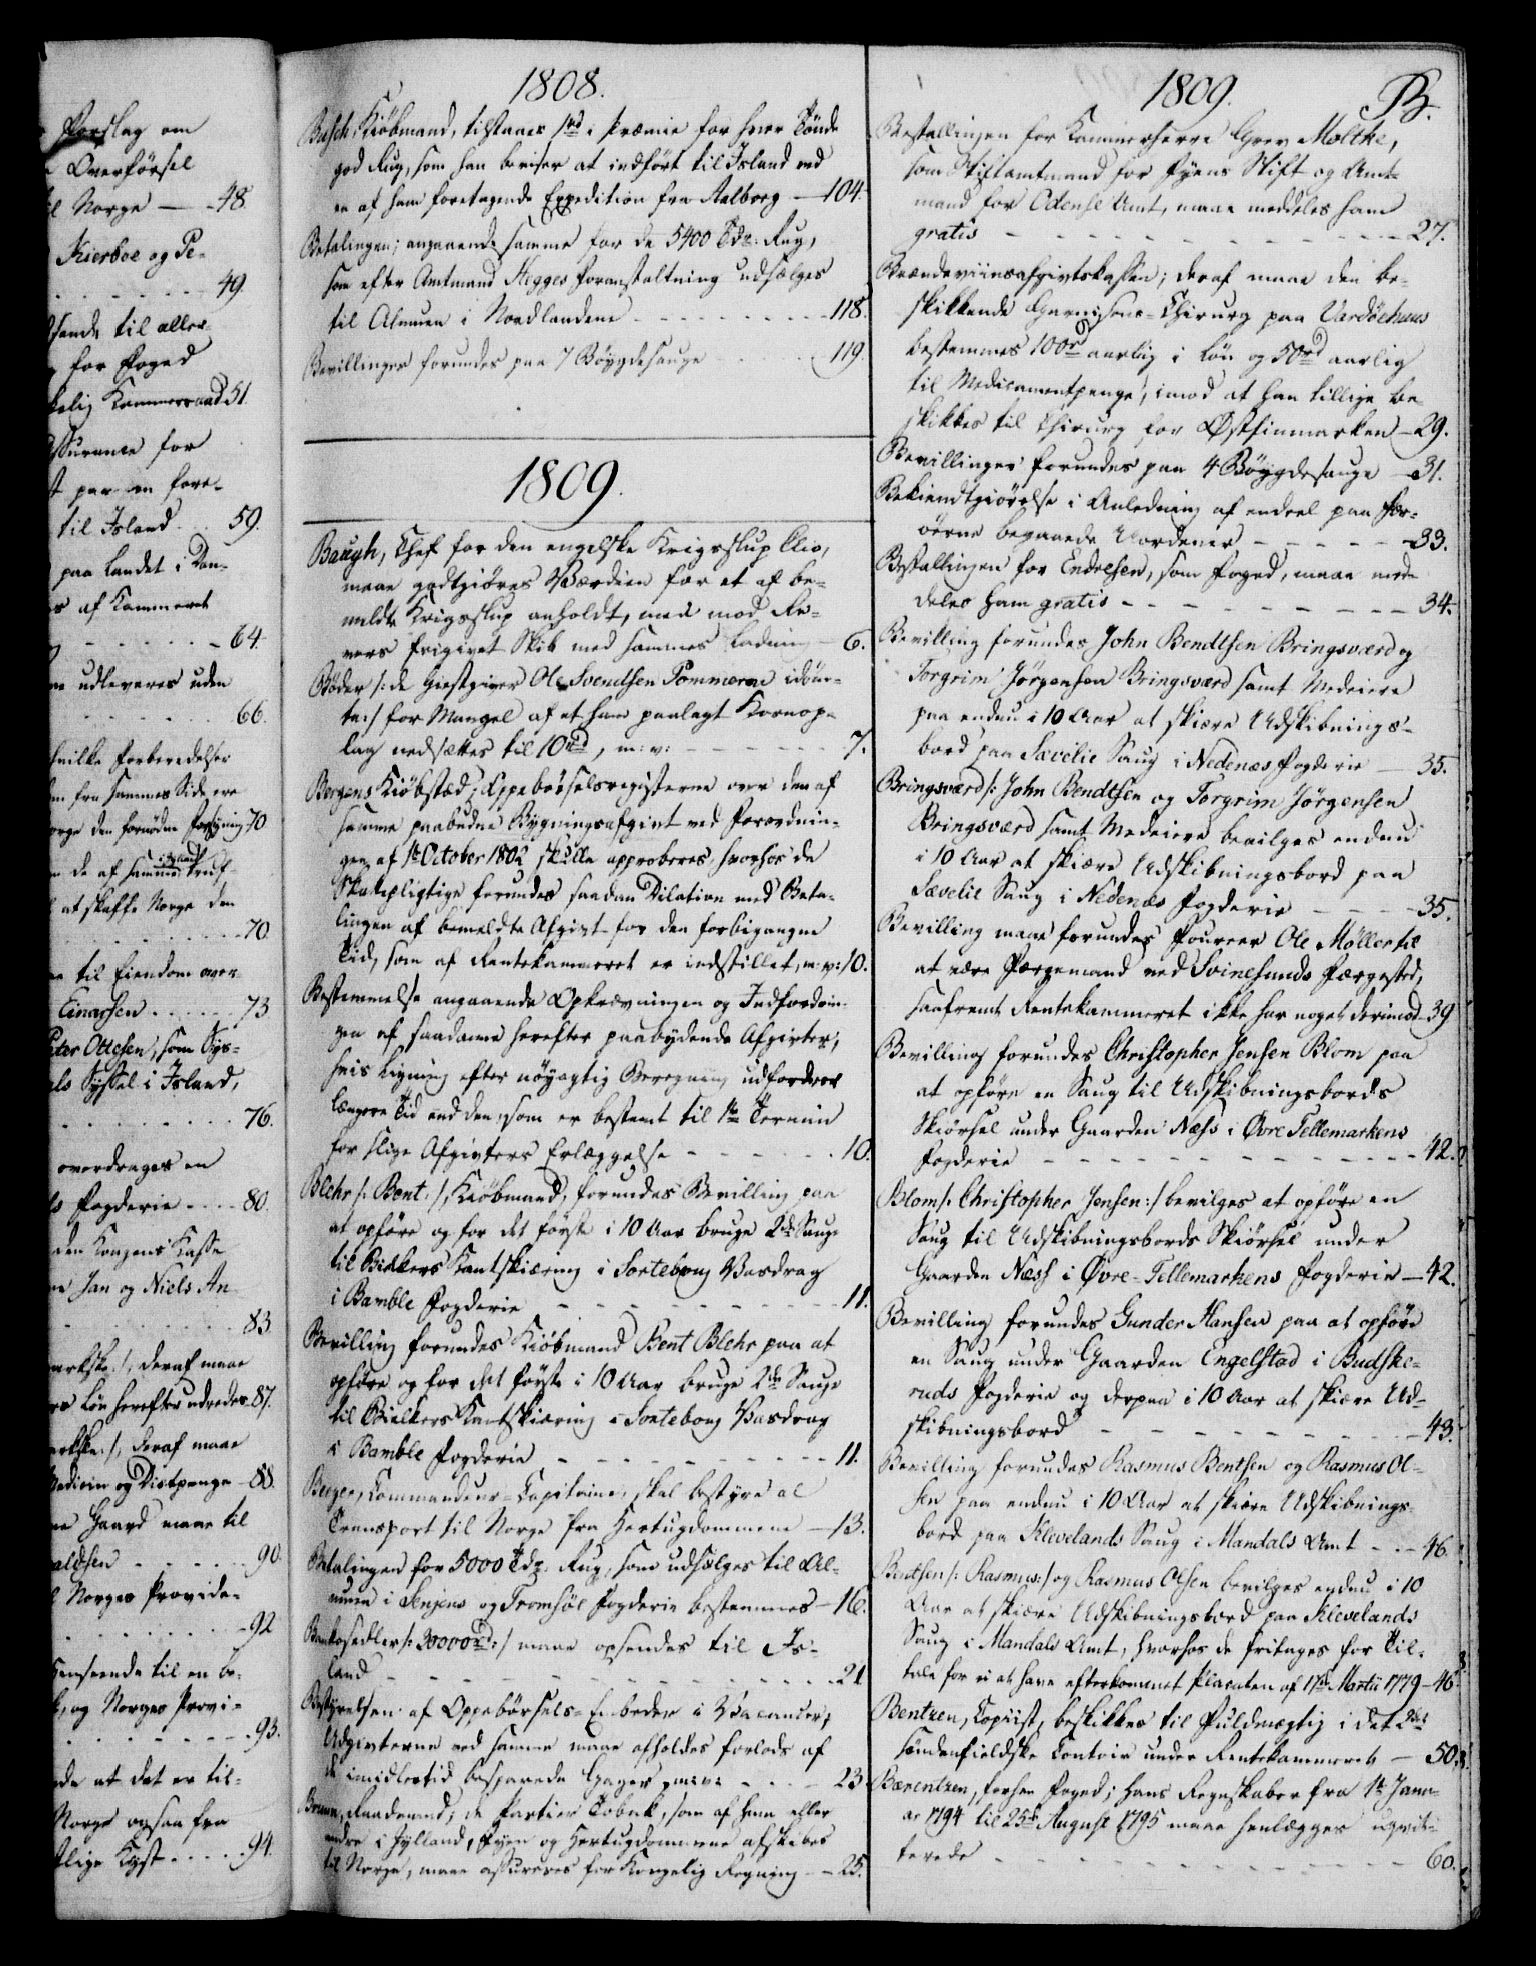 Forslag om
Overførsel
til Norge — 48.
Kierboe og Pe-
49.
sende til aller-
for Foged
kelig Kammerraad 51.
Assurance for
par en fore-
til Island . . . 59.
paa Landet i Dan-
af Kammeret
64.
udleveres uden
66.
hvilke Forberedelser
fra sammes Side ere
Norge den fornødne Forsyning 70
i Island
de af samme truf-
at skaffe Norge den
70.
til Eiendom over-
Einarsen . . . . . . 73
Peter Ottesen, som Sys-
Syssel i Island,
76.
overdrages en
Fogderie . . . . 80.
den Kongens Kasse
Jan og Niels An
83.
deraf maae
Løn herefter udredes 87.
deraf maae
Medicin og Diætpenge — 88.
Gaard maae til
90.
Norges Provide-
92
henseende til en be-
og Norges Provi-
93.
at det er til-
Norge ogsaa fra
lige Kyst . . . . . 94.
1808.
Busch, Kiøbmand, tilstaaes 1rd i Præmie for hver Tønde
god Rug, som han beviser at indført til Island ved
en af ham foretagende Expedition fra Aalborg — 104.
Betalingen; angaaende samme for de 5400 Tdr: Rug,
som efter Amtmand Hegges Foranstaltning udsælges
til Almuen i Nordlandene - - - - - - - - 118.
Bevillinger forundes paa 7 Bøygdesauge - - - - 119.
1809.
Baugh, Chef for den engelske Krigsslup Clio,
maae godtgiøres Værdien for et af be-
meldte Krigsslup anholdt, men mod Re-
vers frigivet Skib med sammes Ladning — 6.
Bøder /: de Giestgiver Ole Svendsen Pommeren idøm-
te :/ for Mangel af et ham paalagt Kornop-
lag nedsættes til 10rd, m: v: - - - - - - 7.
Bergens Kiøbstæd; Oppebørselsregisterne over den af
samme paabudne Bygningsafgivt ved Forordnin-
gen af 1te October 1802 skulle approberes, hvorhos de
Skatepligtige forundes saadan Dilation med Beta-
lingen af bemeldte Afgivt for den forbigangne
Tid, som af Rentekammeret er indstillet, m: v: 10.
Bestemmelse angaaende Opkrævningen og Indfordrin-
gen af saadanne herefter paabydende Afgivter,
hvis Ligning efter nøyagtig Beregning udfordrer
længere Tid end den, som er bestemt til 1te Termin
for slige Afgivters Erlæggelse - - - - - . 10.
Blehr /: Bent :/, Kiøbmand, forundes Bevilling paa
at opføre og for det første i 10 Aar bruge 2de Sauge
til Bielkers Kantskiæring i Sortebong Vasdrag
i Bamble Fogderie - - - - - - - - - - 11.
Bevilling forundes Kiøbmand Bent Blehr paa at
opføre og for det første i 10 Aar bruge 2de Sauge
til Bielkers Kantskiæring i Sortebong Vasdrag
i Bamble Fogderie - - - - - - - - - - 11.
Commandeur-Capitaine, skal bestyre al
Transport til Norge fra Hertugdømmene — 13.
Betalingen for 5000 Tdr. Rug, som udsælges til Al-
muen i Senjens og Tromsøe Fogderie bestemmes — 16.
Bankosedler /: 20000rd :/ maae opsendes til Is-
land - - - - - - - - - - - - - - 21
Bestyrelsen af Oppebørsels-Embeder i Vacancer;
Udgivterne ved samme maae afholdes forlods af
de imidlertid besparede Gager, m: v: - - - - 23.
Raadmand; de Partier Toback, som af ham eller
andre i Jylland, Fyen og Hertugdømmene afskibes
til Norge, maae assureres for Kongelig Regning — 25.
1809.
B.
Bestallingen for Kammerherre Grev Moltke,
som Stiftamtmand for Fyens Stift og Amt-
mand for Odense Amt, maae meddeles ham
gratis - - - - - - - - - - - - - 27.
Brændeviinsafgivtskassen; deraf maae den be-
skikkende Garnisons-Chirurg paa Vardøehuus
bestemmes 100rd aarlig i Løn og 50rd aarlig
til Medicamentpenge, imod at han tillige be
skikkes til Chirurg for Østfinmarken — 29.
Bevillinger forundes paa 4 Bøygdesauge — 31.
Bekiendtgiørelse i Anledning af endeel paa Fær-
øerne begaaede Uordener - - - - - - 33.
Bestallingen for Endresen, som Foged, maae med-
deles ham gratis - - - - - - - - - - 34.
Bevilling forundes John Bendtsen Bringsværd og
Torgrim Jørgensen Bringsværd samt Medeiere
paa endnu i 10 Aar at skiære Udskibnings-
bord paa Sævelie Saug i Nedenæs Fogderie — 35.
Bringsværd /: John Bendtsen og Torgrim Jørgensen
Bringsværd samt Medeiere bevilges endnu
i 10 Aar at skiære Udskibningsbord paa
Sævelie Saug i Nedenæs Fogderie - - - - 35.
Bevilling maae forundes Foureer Ole Møller til
at være Færgemand ved Svinesunds Færgested,
saafremt Rentekammeret ikke har noget derimod — 39
Bevilling forundes Christopher Jensen Blom paa
at opføre en Saug til Udskibningsbords
Skiørsel under Gaarden Næss i Øvre Tellemarkens
Fogderie - - - - - - - - - - - - - 42.
Blom /: Christopher Jensen :/ bevilges at opføre en
Saug til Udskibningsbords Skiørsel under
Gaarden Næss i Øvre-Tellemarkens Fogderie — 42.
Bevilling forundes Gunder Hansen paa at opføre
en Saug under Gaarden Engelstad i Budske-
ruds Fogderie og derpaa i 10 Aar at skiære Ud-
skibningsbord - - - - - - - - - - - 43.
Bevilling forundes Rasmus Bentsen og Rasmus Ol-
sen paa endnu i 10 Aar at skiære Udskibnings-
bord paa Klevelands Saug i Mandals Amt - - - 46.
Bentsen /: Rasmus :/ og Rasmus Olsen bevilges endnu i 10
Aar at skiære Udskibningsbord paa Klevelands
Saug i Mandals Amt, hvorhos de fritages for Til-
tale for ei at have efterkommet Placaten af 17de Martii 1779 — 46.
Bentzen, Copiist, beskikkes til Fuldmægtig i det 2det
søndenfieldske Contoir under Rentekammeret — 50.
Bærentzen, forhen Foged; hans Regnskaber fra 1te Janu-
ar 1794 til 25de August 1795 maae henlægges uqvit-
terede - - - - - - - - - - - - - 60.